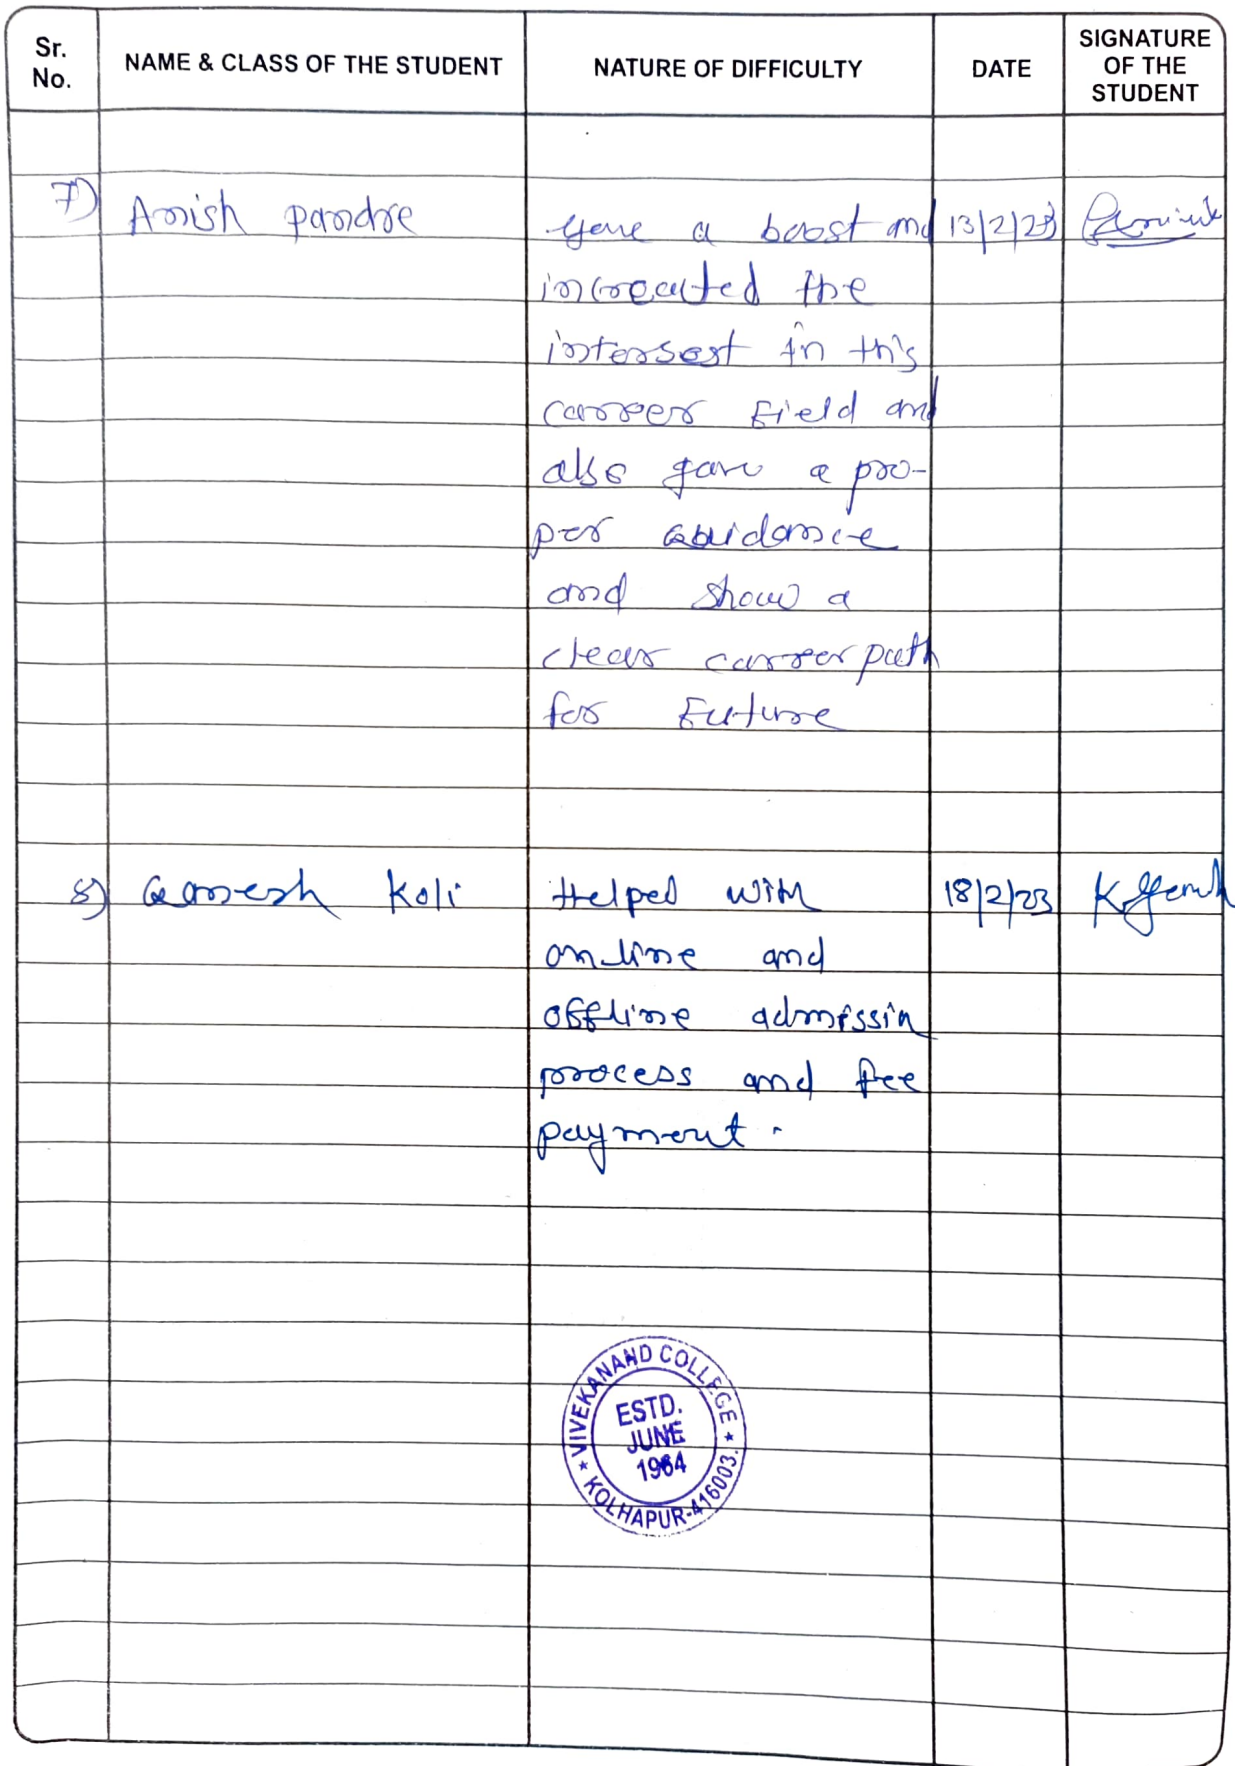 Sr. No.
NAME & CLASS OF THE STUDENT
NATURE OF DIFFICULTY
DATE
SIGNATURE OF THE STUDENT
7) Anish pandre Gave a boost and 13/2/23
increated the
interSest in this
carreer Field and
also gave a pro-
per Guidance
and show a
clear carreer path
for Future
8) Ganesh Koli Helped with 18/2/23
online and
offline admissin
process and fee
payment.
VIVEKANAND COLLEGE
ESTD.
JUNE
1964
KOLHAPUR-416003.